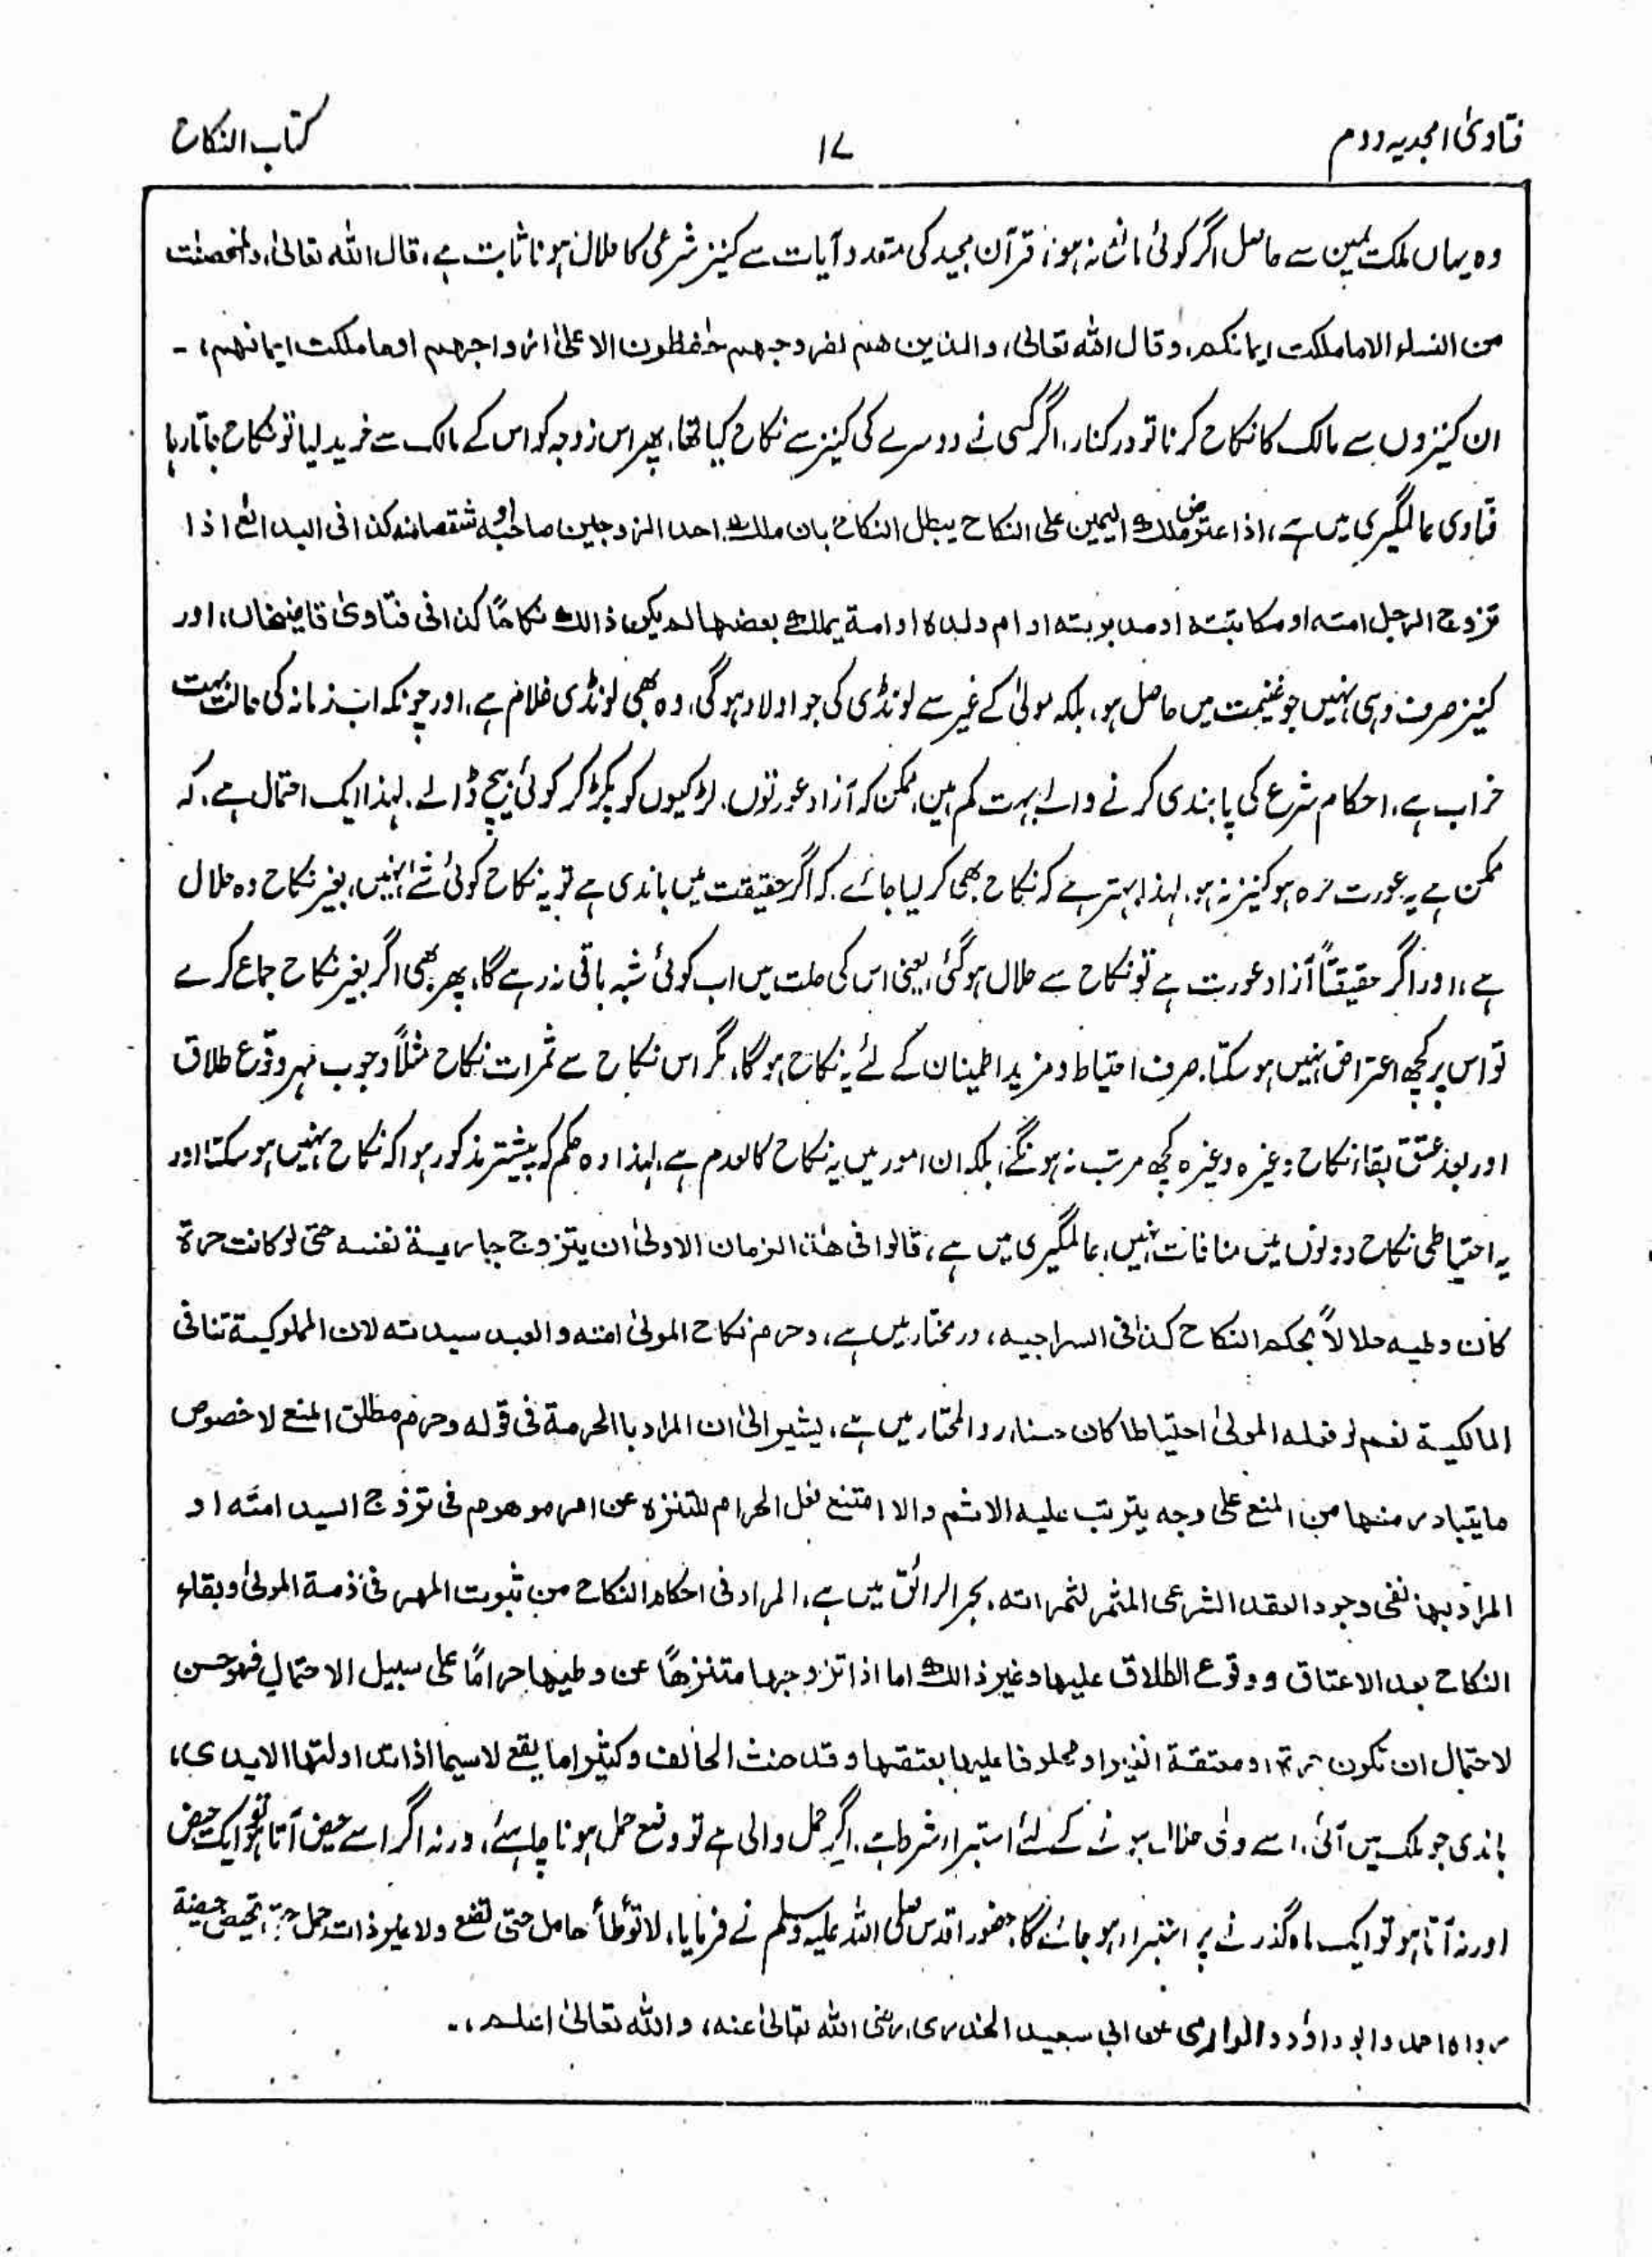 فتاویٰ امجدیہ دوم
۱۷
کتاب النکاح
وہ یہاں ملک یمین سے حاصل اگر کوئی مانع نہ ہو، قرآن مجید کی متعدد آیات سے کنیز شرعی کا حلال ہونا ثابت ہے، قال اللہ تعالیٰ، والمحصنٰت
من النساء الا ما ملکت ایمانکم، وقال اللہ تعالیٰ، والذین ھم لفروجھم حٰفظون الا علیٰ ازواجھم او ما ملکت ایمانھم، ۔
ان کنیزوں سے مالک کا نکاح کرنا تو درکنار، اگر کسی نے دوسرے کی کنیز سے نکاح کیا تھا، پھر اس زوجہ کو اس کے مالک سے خرید لیا تو نکاح جاتا رہا
فتاوی عالمگیری میں ہے، اذا اعترض ملک الیمین علی النکاح یبطل النکاح بان ملک احد الزوجین صاحبہ او شقصا منہ کذا فی البدائع اذا
تزوج الرجل امتہ او مکاتبتہ او مدبرتہ او ام ولدہ او امۃ یملک بعضھا لم یکن ذالک نکاحًا کذا فی فتاویٰ قاضیخان، اور
کنیز صرف وہی نہیں جو غنیمت میں حاصل ہو، بلکہ مولیٰ کے غیر سے لونڈی کی جو اولاد ہوگی، وہ بھی لونڈی غلام ہے، اور چونکہ اب زمانہ کی حالت بہت
خراب ہے، احکام شرع کی پابندی کرنے والے بہت کم ہیں، ممکن کہ آزاد عورتوں، لڑکیوں کو پکڑ کر کوئی بیچ ڈالے، لہذا ایک احتمال ہے، کہ
ممکن ہے یہ عورت حرہ ہو کنیز نہ ہو، لہذا بہتر ہے کہ نکاح بھی کر لیا جائے، کہ اگر حقیقت میں باندی ہے تو یہ نکاح کوئی شئے نہیں، بغیر نکاح وہ حلال
ہے، اور اگر حقیقتًا آزاد عورت ہے تو نکاح سے حلال ہوگئی، یعنی اس کی حلت میں اب کوئی شبہ باقی نہ رہے گا، پھر بھی اگر بغیر نکاح جماع کرے
تو اس پر کچھ اعتراض نہیں ہو سکتا، صرف احتیاط و مزید اطمینان کے لئے یہ نکاح ہوگا، مگر اس نکاح سے ثمرات نکاح مثلًا وجوب مہر وقوع طلاق
اور بعد عتق بقاء نکاح وغیرہ وغیرہ کچھ مرتب نہ ہونگے، بلکہ ان امور میں یہ نکاح کالعدم ہے، لہذا وہ حکم کہ پیشتر مذکور ہوا کہ نکاح نہیں ہو سکتا اور
یہ احتیاطی نکاح دونوں میں منافات نہیں، عالمگیری میں ہے، قالوا فی ھذا الزمان الاولیٰ ان یتزوج جاریۃ نفسہ حتی لو کانت حرۃ
کان وطیہ حلالًا بحکم النکاح کذا فی السراجیہ، در مختار میں ہے، وحرم نکاح المولیٰ امتہ والعبد سیدتہ لان المملوکیۃ تنافی
المالکیۃ نعم لو فعلہ المولیٰ احتیاطا کان حسنا، رد المحتار میں ہے، یشیر الیٰ ان المراد بالحرمۃ فی قولہ وحرم مطلق المنع لا خصوص
ما یتبادر منھا من المنع علی وجہ یترتب علیہ الاثم والا امتنع فعل الحرام للتنزہ عن امر موھوم فی تزوج السید امتہ او
المراد بھا نفی وجود العقد الشرعی المثمر لثمراتہ، بحر الرائق میں ہے، المراد فی احکام النکاح من ثبوت المھر فی ذمۃ المولیٰ وبقاء
النکاح بعد الاعتاق ووقوع الطلاق علیھا وغیر ذالک اما اذا تزوجھا متنزھًا عن وطیھا حرامًا علی سبیل الاحتمال فھو حسن
لاحتمال ان تکون حرۃ او معتقۃ الغیر او محلوفا علیھا بعتقھا وقد حنث الحالف وکثیرا ما یقع لا سیما اذا تداولتھا الایدی،،
باندی جو ملک میں آئی، اس سے وطی حلال ہونے کے لئے استبراء شرط ہے، اگر حمل والی ہے تو وضع حمل ہونا چاہئے، ورنہ اگر اسے حیض آتا ہو تو ایک حیض
اور نہ آتا ہو تو ایک ماہ گذرنے پر استبراء ہو جائے گا، حضور اقدس صلی اللہ علیہ وسلم نے فرمایا، لا توطأ حامل حتی تضع ولا غیر ذات حمل حتی تحیض حیضۃ
رواہ احمد وابو داؤد والدارمی عن ابی سعید الخدری، رضی اللہ تعالیٰ عنہ، واللہ تعالیٰ اعلم،۔